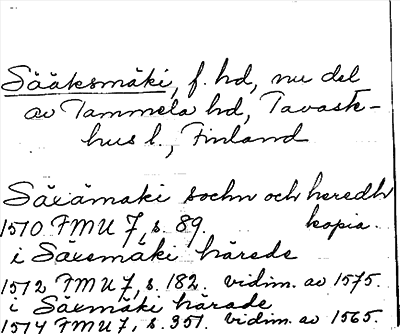 Sääksmäki, f. hd, nu del
av Tammela hd, Tavast-
hus l., Finland
Säxämäki sochn och heredh
1510 FMU 7, s. 89. kopia.
i Säxemäki härede
1512 FMU 7, s. 182. vidim. av 1575.
i Säxmäki härade
1514 FMU 7, s. 351. vidim. av 1565.